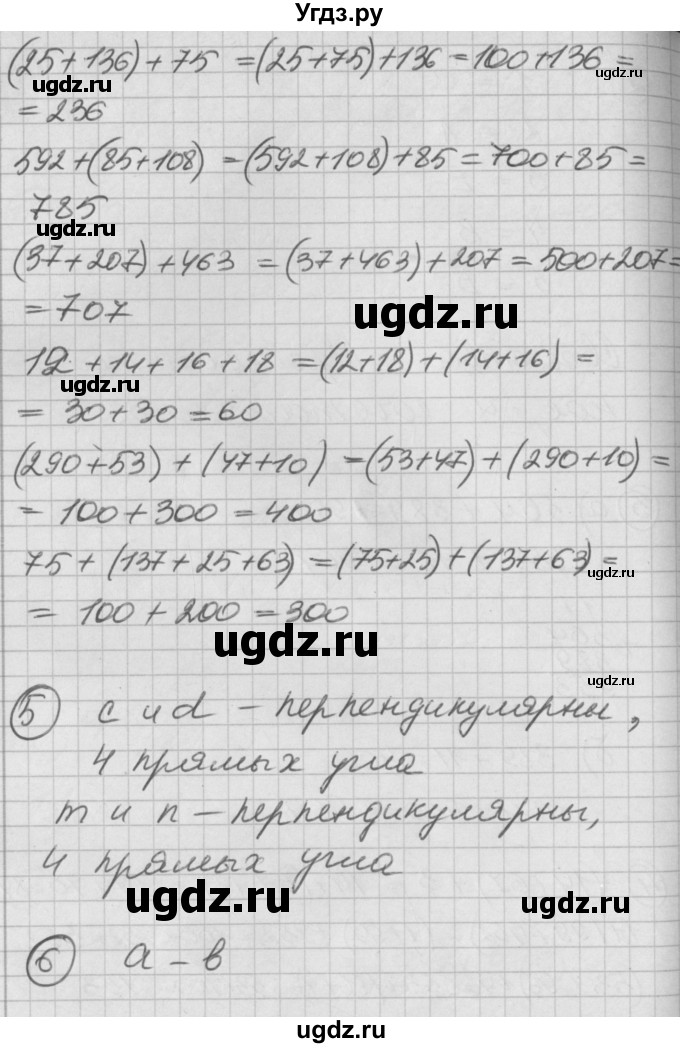 Угдз.ру
(25+136)+75 =(25+75)+136=100+136=
ugdz.ru
ugdz.ru
=236
592+(85+108) =(592+108)+85=700+85=
785
ugdz.ru
(37+207)+463 =(37+463)+207=500+207=
=707
ugdz.ru
12+14+16+18 =(12+18)+(14+16)=
ugdz.ru
=30+30=60
(290+53)+(47+10) =(53+47)+(290+10)=
=100+300=400
75+(137+25+63)=(75+25)+(137+63)=
ugdz.ru
=100+200=300
ugdz.ru
ugdz.ru
5 c и d - перпендикулярны,
4 прямых угла
m и n - перпендикулярны,
4 прямых угла
ugdz.ru
ugdz.ru
6 a - в
ugdz.ru